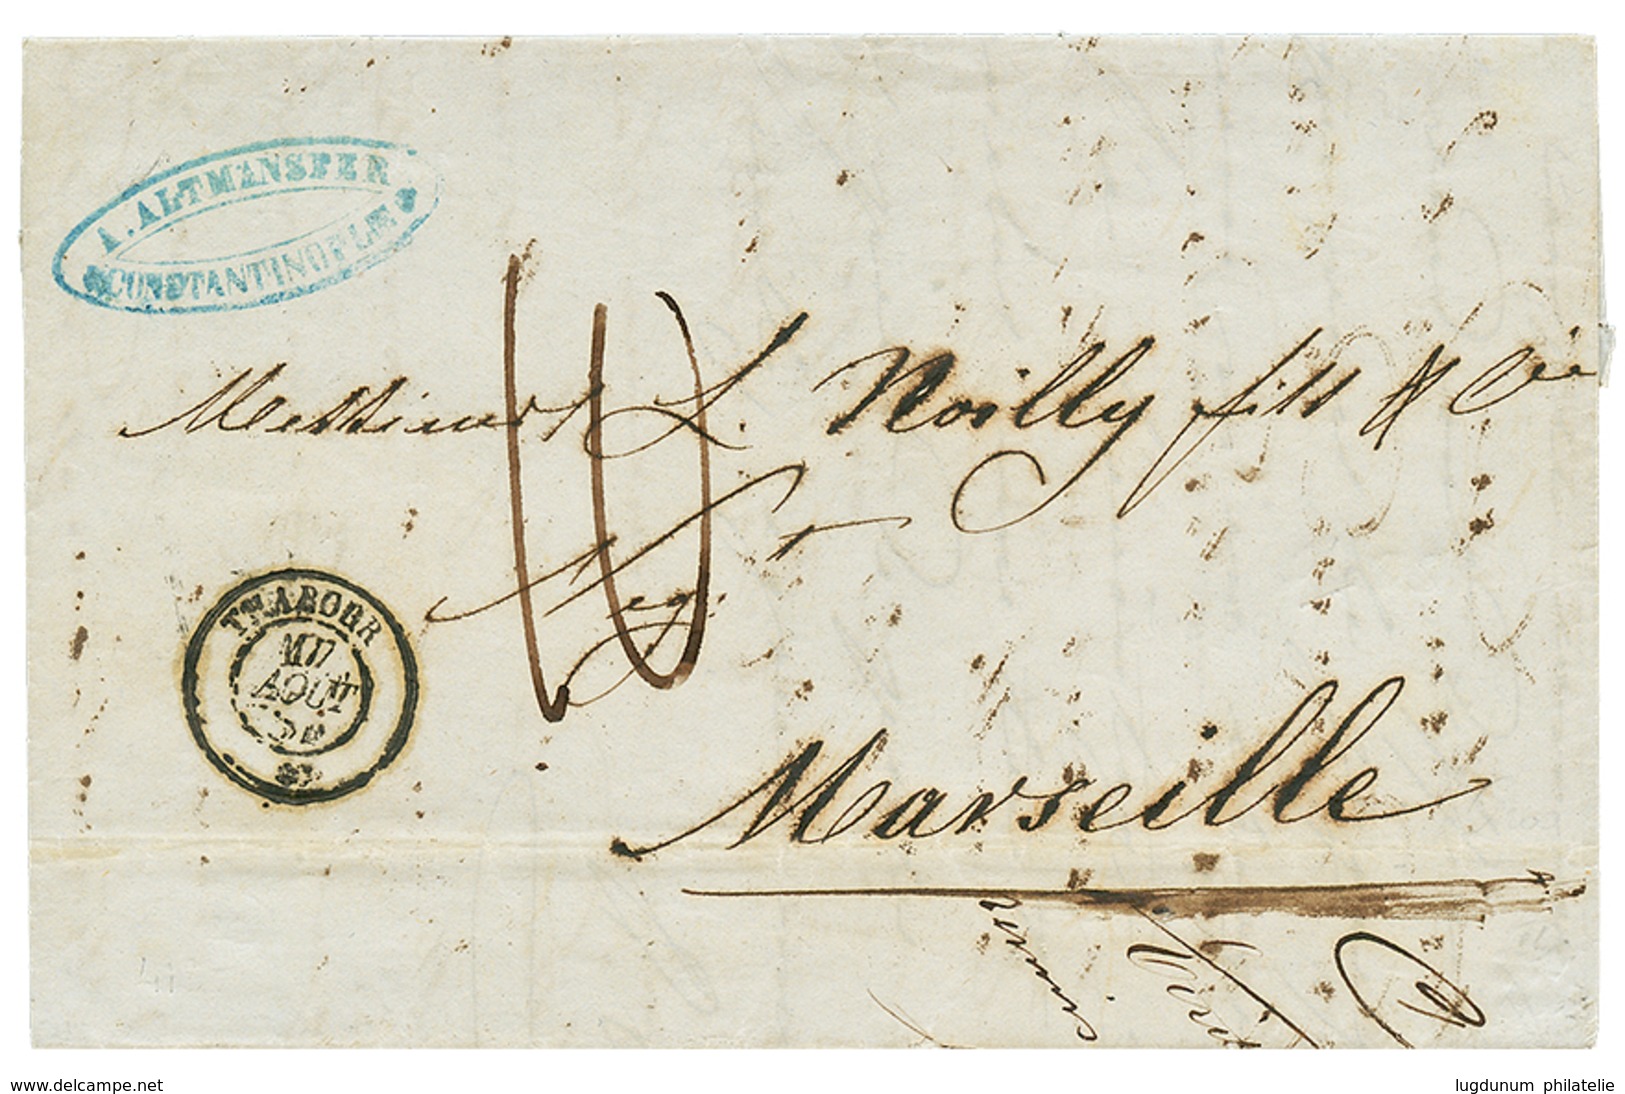 A. ALTMANSPER
CONSTANTINOPLE
10
Messieurs L. Noilly fils & Cie
Neg.t
THABOR
AOUT
Marseille
www.delcampe.net
lugdunum philatelie